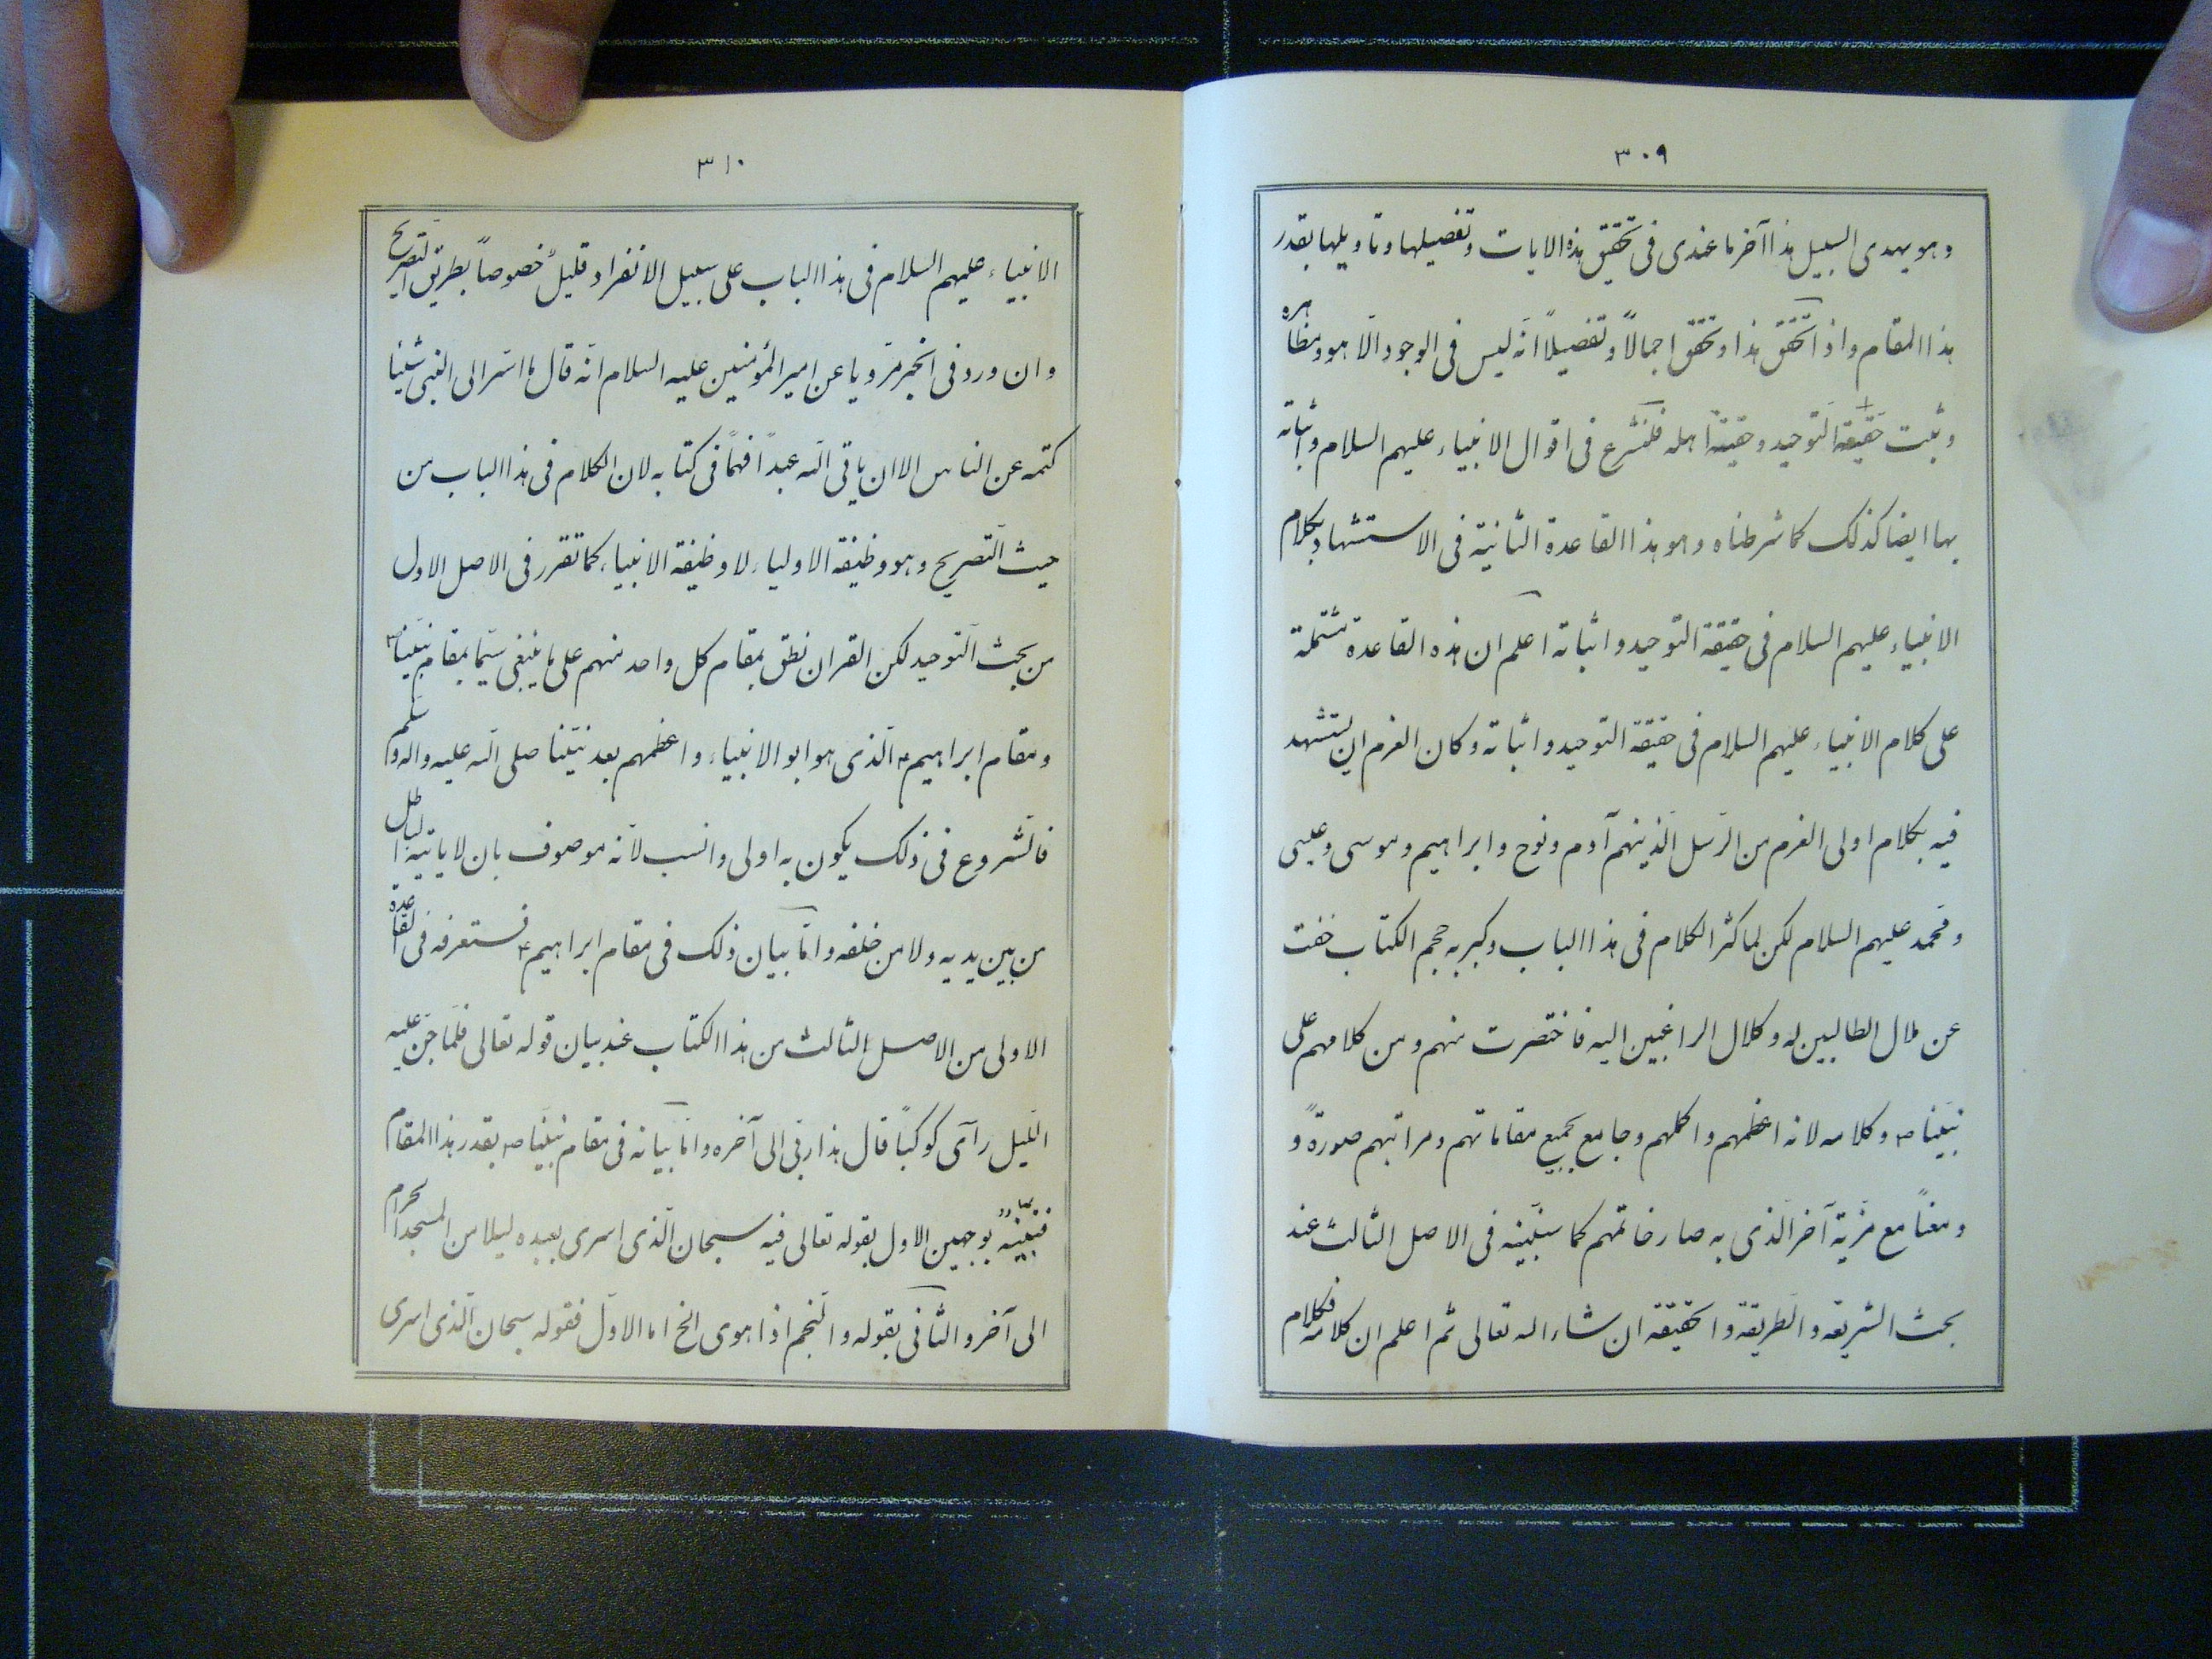 ٣٠٩
وهو يهدى السبيل هذا آخر ما عندى فى تحقيق هذه الايات وتفصيلها وتاويلها بقدر
هذا المقام واذا تحقق هذا وتحقق اجمالاً وتفصيلاً انّه ليس فى الوجود الّا هو ومظاهره
وثبت حقيقة التوحيد وحقيّة اهله فلنشرع فى اقوال الانبياء عليهم السلام واثباته
بها ايضا كذلك كما شرطناه وهو هذا القاعدة الثانية فى الاستشهاد بكلام
الانبياء عليهم السلام فى حقيقة التوحيد واثباته اعلم ان هذه القاعدة مشتملة
على كلام الانبياء عليهم السلام فى حقيقة التوحيد واثباته وكان العزم ان يستشهد
فيه بكلام اولى العزم من الرّسل الّذينهم آدم ونوح وابراهيم وموسى وعيسى
ومحمد عليهم السلام لكن لما كثر الكلام فى هذا الباب وكبر به حجم الكتاب خفت
عن ملال الطالبين له وكلال الراغبين اليه فاختصرت منهم ومن كلامهم على
نبيّنا ص وكلامه لانه اعظمهم واكملهم وجامع بجميع مقاماتهم ومراتبهم صورةً و
ومعناً مع مزية آخر الّذى به صار خاتمهم كما سنبيّنه فى الاصل الثالث عند
بحث الشريعة والطّريقة والحقيقة ان شاء الله تعالى ثم اعلم ان كلامه فكلام
٣١٠
الانبياء عليهم السلام فى هذا الباب على سبيل الانفراد قليلٌ خصوصاً بطريق التّصريح
وان ورد فى الخبر مرويا عن امير المؤمنين عليه السلام انّه قال ما اسّر الى النبى شيئا
كتمه عن الناس الا ان ياتى الله عبداً فهماً فى كتابه لان الكلام فى هذا الباب من
حيث التّصريح وهو وظيفة الاولياء لا وظيفة الانبياء كما تقرر فى الاصل الاول
من بحث التّوحيد لكن القران نطق بمقام كل واحد منهم على ما ينبغى سيّما بمقام نبيّنا ص
ومقام ابراهيم ع الّذى هو ابو الانبياء واعظمهم بعد نبيّنا صلى الله عليه واله وسلم
فالشّروع فى ذلك يكون به اولى وانسب لانّه موصوف بان لا ياتيه الباطل
من بين يديه ولا من خلفه وامّا بيان ذلك فى مقام ابراهيم ع فستعرفه فى القاعدة
الاولى من الاصل الثالث من هذا الكتاب عند بيان قوله تعالى فلمّا جنّ عليه
الّليل رآى كوكباً قال هذا ربّى الى آخره وامّا بيانه فى مقام نبيّنا ص بقدر هذا المقام
فنبيّنه بوجهين الاول بقوله تعالى فيه سبحان الّذى اسرى بعبده ليلا من المسجد الحرام
الى آخر والثّانى بقوله والنّجم اذا هوى الخ اما الاوّل فقوله سبحان الّذى اسرى